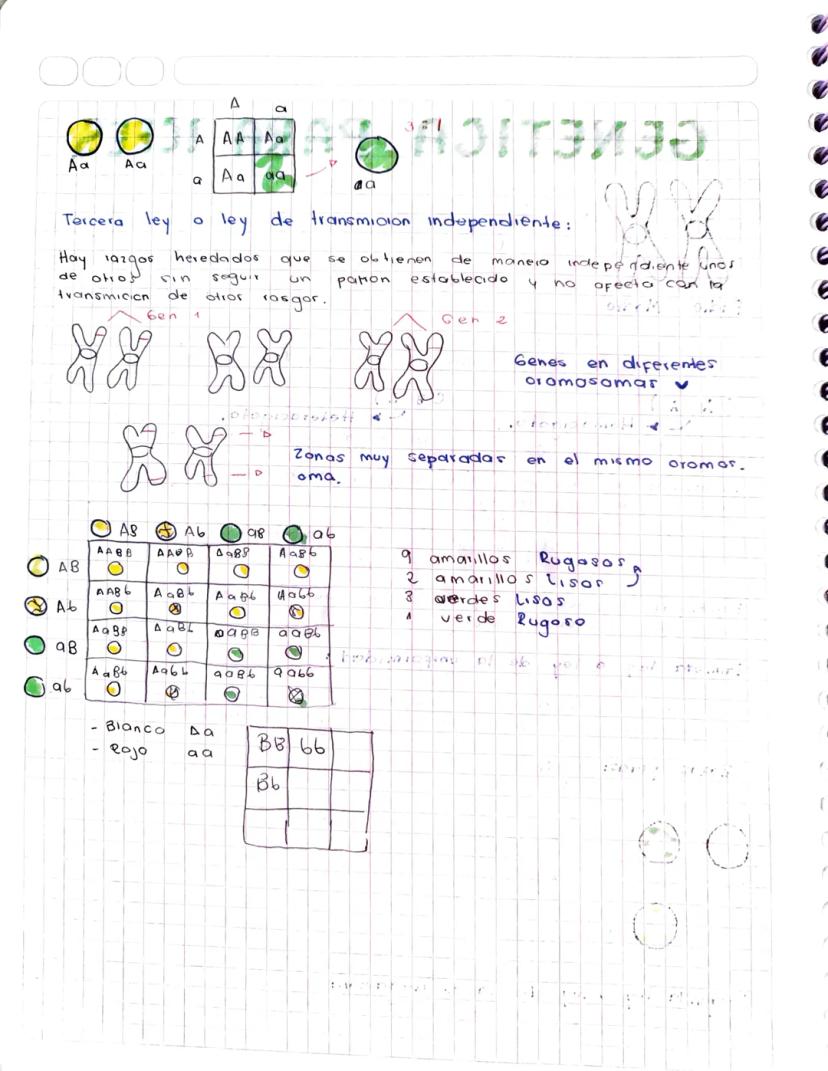 A a
A AA Aa 3:1
Aa Aa
a Aa aa
aa
Tercera ley o ley de transmicion independiente:
Hay razgos heredados que se obtienen de manera independiente unos
de otros sin seguir un patron establecido y no afecta con la
transmicion de otros rasgor.
Gen 1 Gen 2
Genes en diferentes
cromosomas
Zonas muy separadas en el mismo cromos.
oma.
AB Ab aB ab
AB AABB AaBB AaBb
Ab AABb AaBb AaBb Aabb
aB AaBB AaBb aaBB aaBb
ab AaBb Aabb aaBb aabb
9 amarillos Rugosos
2 amarillos Lisos
3 verdes Lisos
1 verde Rugoso
- Blanco Aa
- Rojo aa
BB bb
Bb